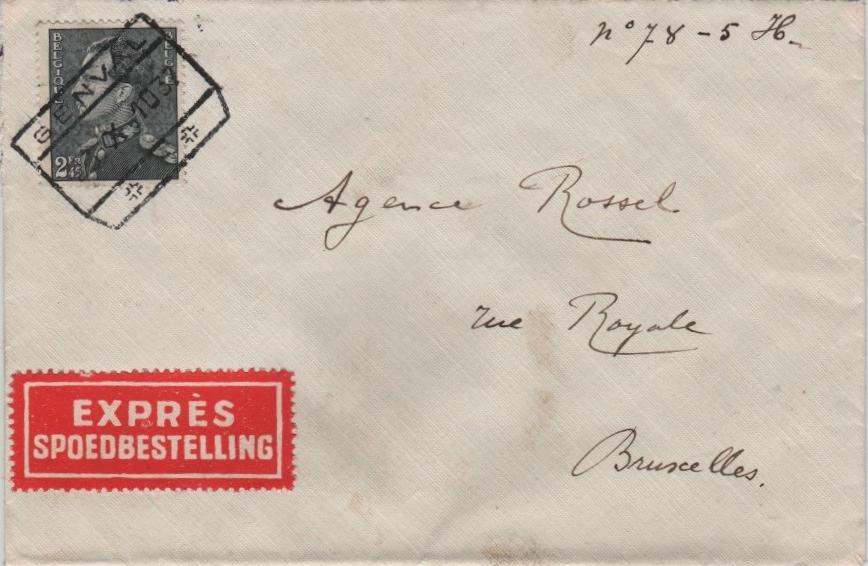 n° 78 - 5 H.
BELGIQUE
BELGIE
2 FR 45
GENVAL
Agence Rossel
rue Royale
Bruxelles.
EXPRÈS
SPOEDBESTELLING